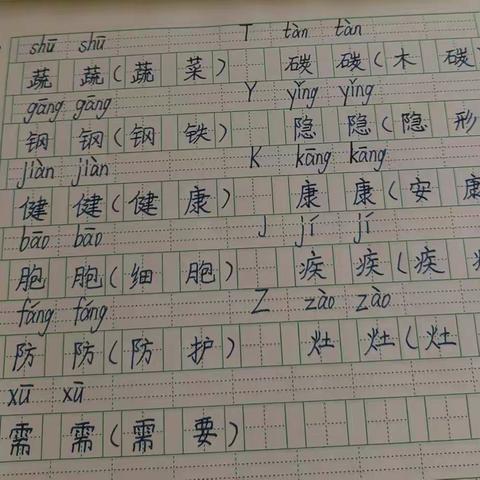 shū shū T tàn tàn
蔬 蔬(蔬 菜) 碳 碳(木 碳
gāng gāng Y yǐng yǐng
钢 钢(钢 铁) 隐 隐(隐 形
jiàn jiàn K kāng kāng
健 健(健 康) 康 康(安 康
bāo bāo J jí jí
胞 胞(细 胞) 疾 疾(疾
fáng fáng Z zào zào
防 防(防 护) 灶 灶(灶
xū xū
需 需(需 要)